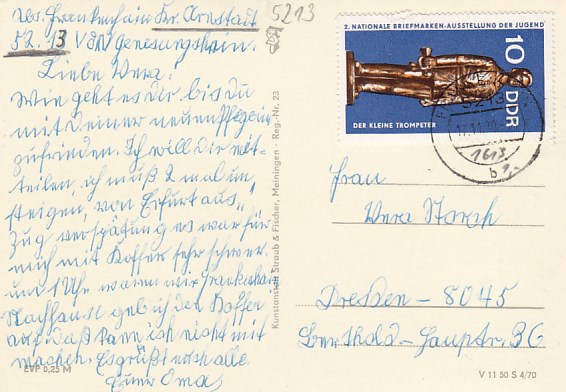 Abs. Frankenhain Kr. Arnstadt
5213 VdN Genesungsheim.
5213
Liebe Vera!
Wie geht es Dir bis Du
mit Deiner neuen Pflegerin
zufrieden. Ich will Dir mit-
teilen, ich muß 2 mal um
steigen, von Erfurt aus,
Zug verspätung es war für
mich mit Koffer sehr schwer
und 1 Uhr waren wir Frankenhain
Nachhaus geb ich den Koffer
auf, daß kann ich nicht mit
machen. Es grüßt euch alle
Eure Oma
EVP 0,25 M
Kunstanstalt Straub & Fischer, Meiningen · Reg.-Nr. 23
2. NATIONALE BRIEFMARKEN-AUSSTELLUNG DER JUGEND
10
DDR
DER KLEINE TROMPETER
5213
1613
b
Frau
Vera Storch
Dresden - 8045
Berthold-Haupt-Str. 36
V 11 50 S 4/70